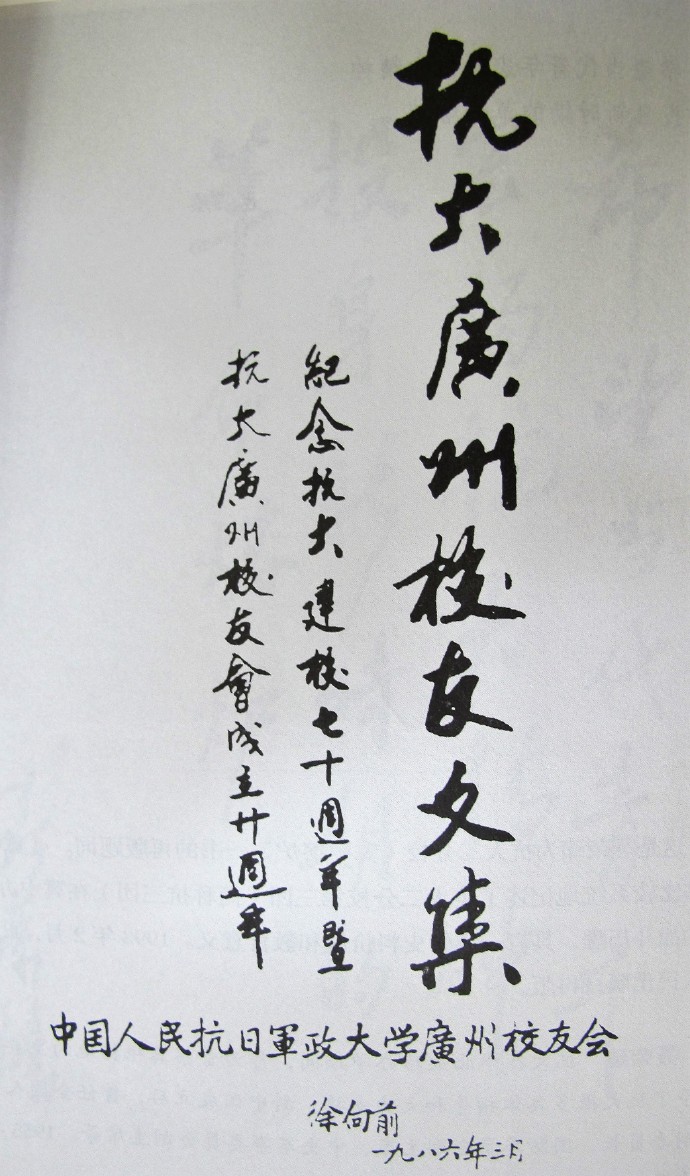 抗大廣州校友文集
紀念抗大建校七十週年暨
抗大廣州校友會成立廿週年
中国人民抗日軍政大学廣州校友会
徐向前
一九八六年三月